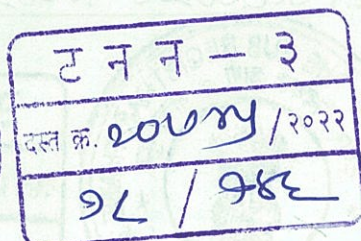 ट न न – ३
दस्त क्र. २०७४५ /२०२२
१८ / १४६